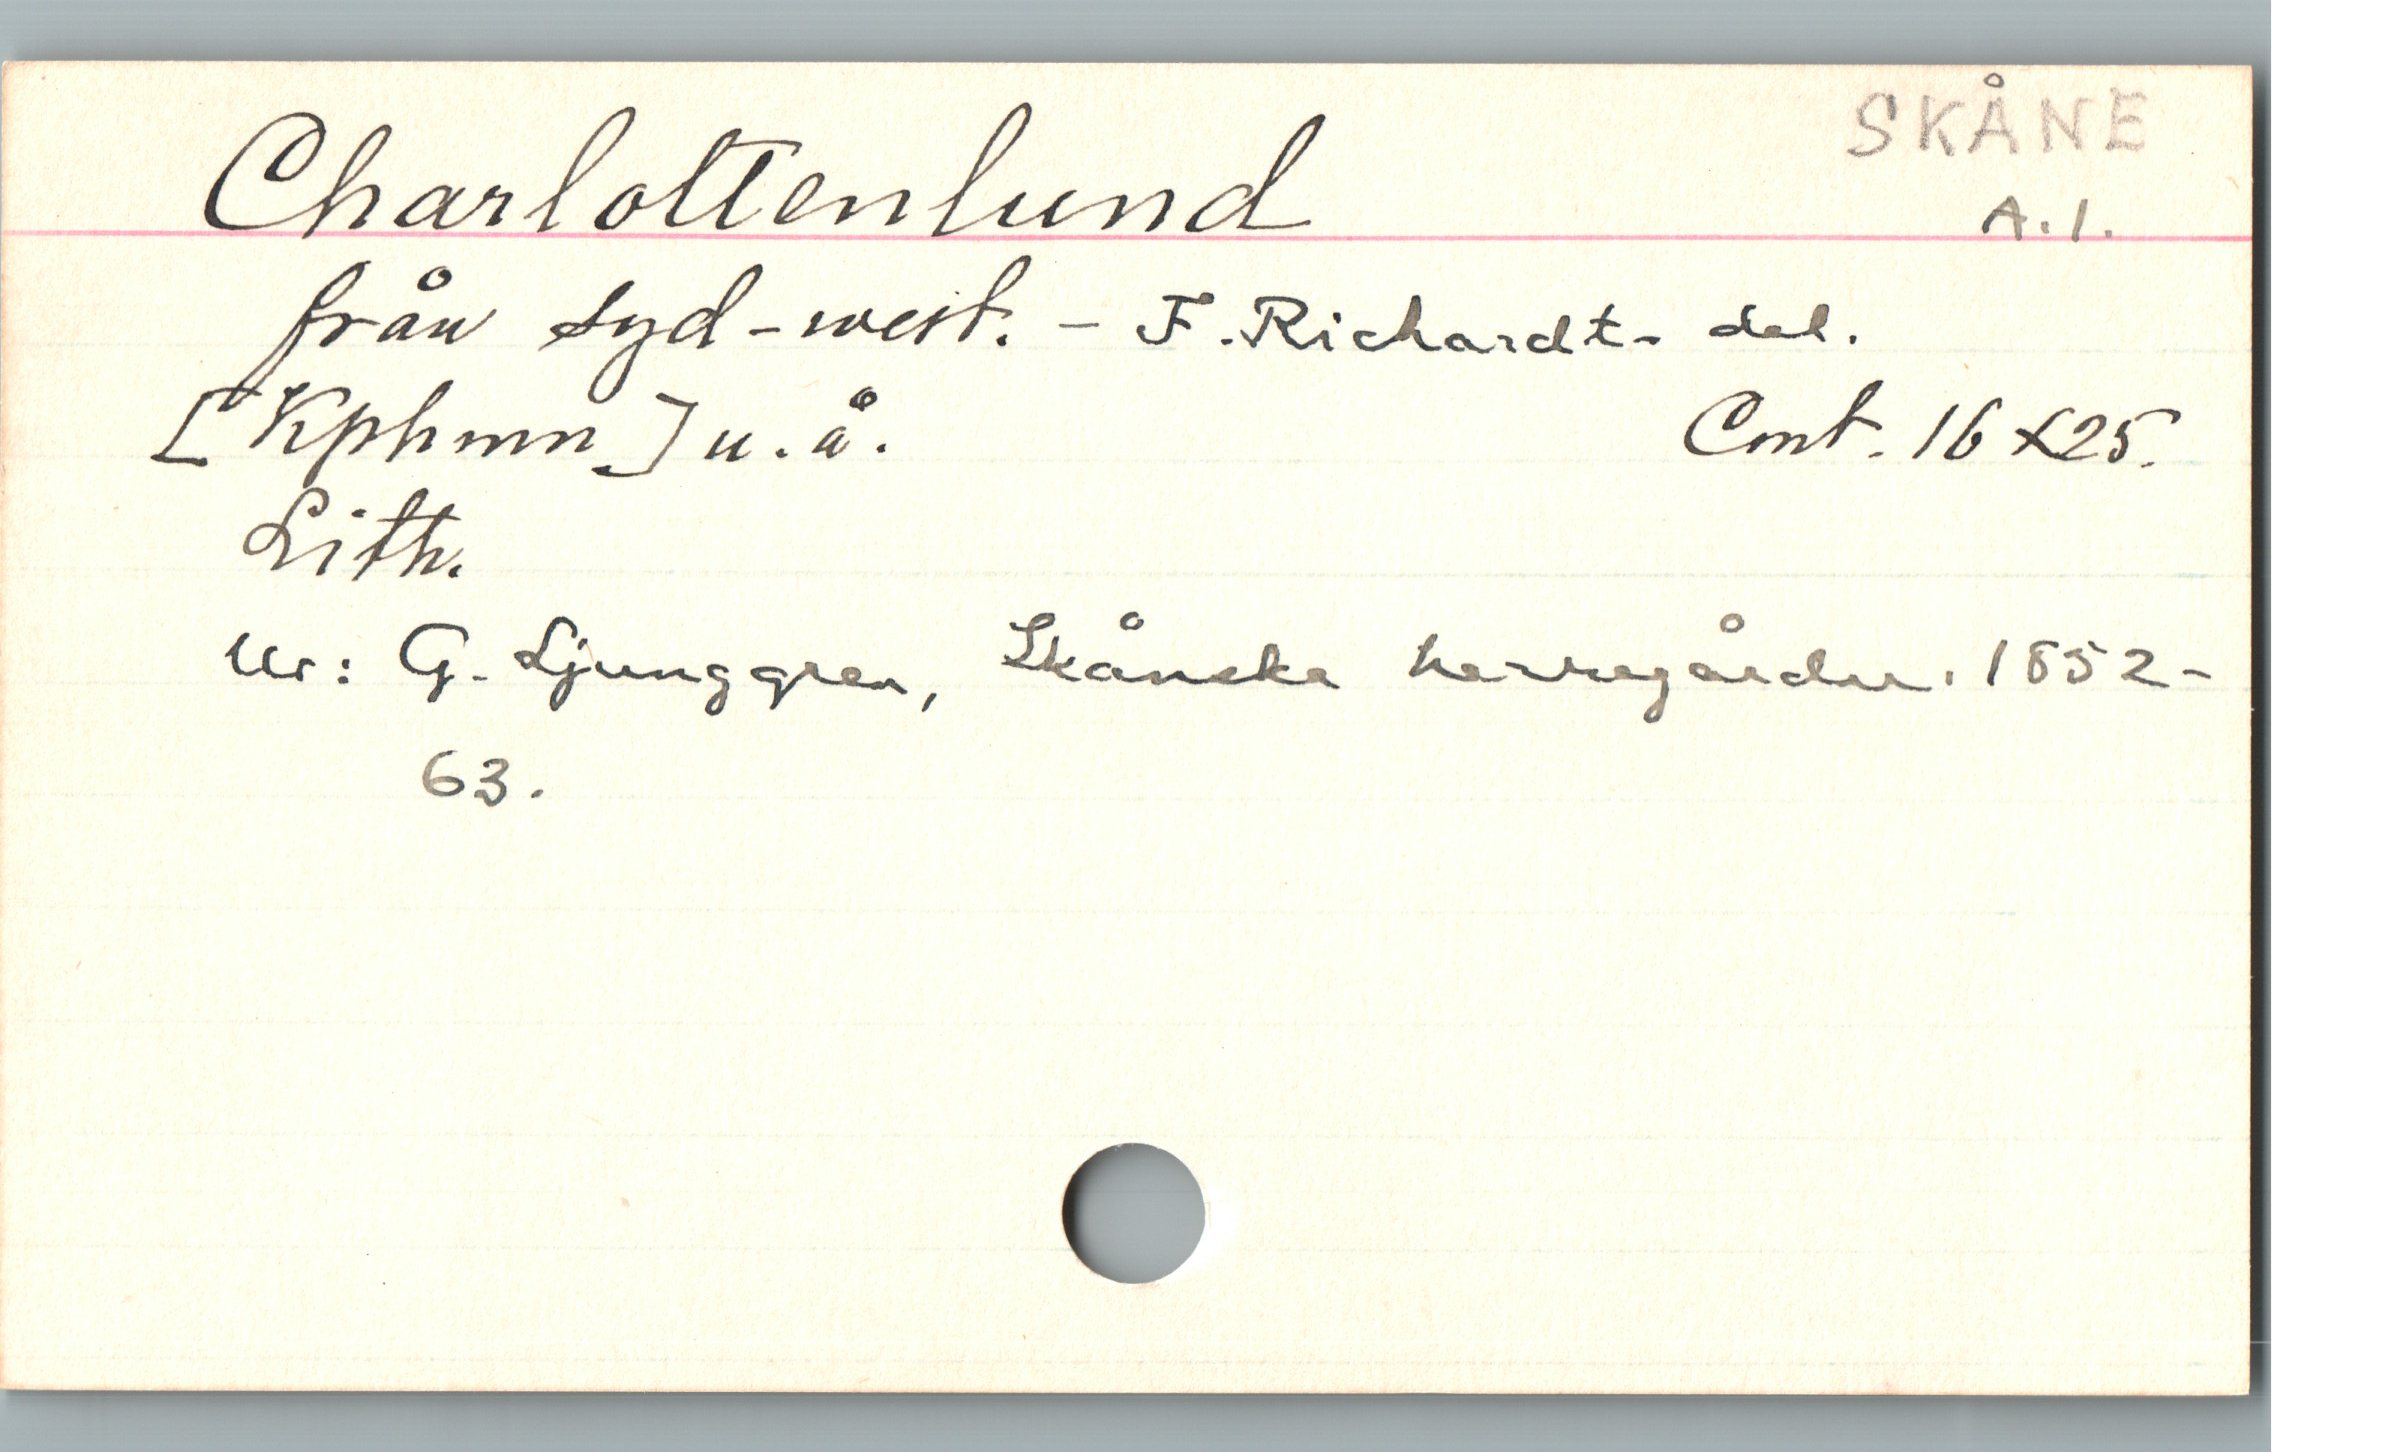 SKÅNE
Charlottenlund
A.1.
från syd-west. - F. Richardt. del.
[Kphmn] u.å. Cmt. 16x25.
Lith.
Ur: G. Ljunggren, Skånska herregårdar. 1852-
63.